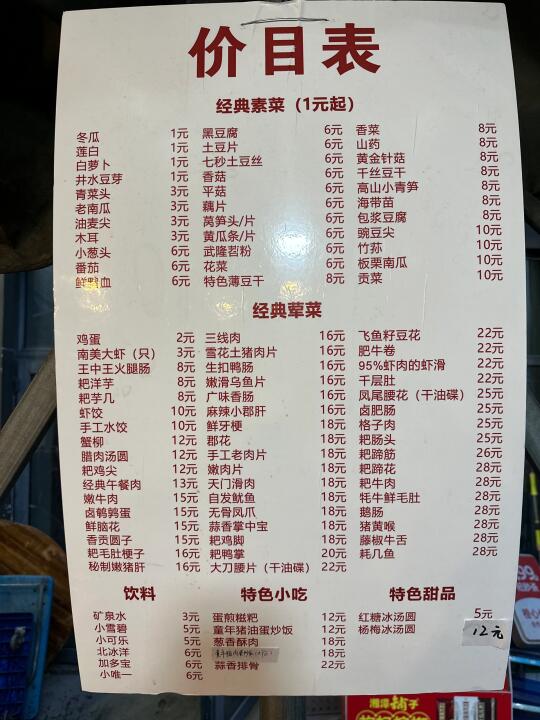 价目表
经典素菜（1元起）
冬瓜 1元
莲白 1元
白萝卜 1元
井水豆芽 1元
青菜头 3元
老南瓜 3元
油麦尖 3元
木耳 3元
小葱头 6元
番茄 6元
鲜鸭血 6元
黑豆腐 6元
土豆片 6元
七秒土豆丝 6元
香菇 6元
平菇 6元
藕片 6元
莴笋头/片 6元
黄瓜条/片 6元
武隆苕粉 6元
花菜 6元
特色薄豆干 8元
香菜 8元
山药 8元
黄金针菇 8元
千丝豆干 8元
高山小青笋 8元
海带苗 8元
包浆豆腐 8元
豌豆尖 10元
竹荪 10元
板栗南瓜 10元
贡菜 10元
经典荤菜
鸡蛋 2元
南美大虾（只） 3元
王中王火腿肠 8元
耙洋芋 8元
耙芋几 8元
虾饺 10元
手工水饺 10元
蟹柳 12元
腊肉汤圆 12元
耙鸡尖 12元
经典午餐肉 13元
嫩牛肉 15元
卤鹌鹑蛋 15元
鲜脑花 15元
香贡圆子 15元
耙毛肚梗子 16元
秘制嫩猪肝 16元
三线肉 16元
雪花土猪肉片 16元
生扣鸭肠 16元
嫩滑乌鱼片 16元
广味香肠 16元
麻辣小郡肝 16元
鲜牙梗 18元
郡花 18元
手工老肉片 18元
嫩肉片 18元
天门滑肉 18元
自发鱿鱼 18元
无骨凤爪 18元
蒜香掌中宝 18元
耙鸡脚 18元
耙鸭掌 20元
大刀腰片（干油碟） 22元
飞鱼籽豆花 22元
肥牛卷 22元
95%虾肉的虾滑 22元
千层肚 22元
凤尾腰花（干油碟） 25元
卤肥肠 25元
格子肉 25元
耙肠头 25元
耙蹄筋 26元
耙蹄花 28元
耙牛肉 28元
牦牛鲜毛肚 28元
鹅肠 28元
猪黄喉 28元
藤椒牛舌 28元
耗几鱼 28元
饮料
矿泉水 3元
小雪碧 5元
小可乐 5元
北冰洋 6元
加多宝 6元
小唯一 6元
特色小吃
蛋煎糍粑 12元
童年猪油蛋炒饭 12元
葱香酥肉 18元
18元
蒜香排骨 22元
特色甜品
红糖冰汤圆 5元
杨梅冰汤圆 12元